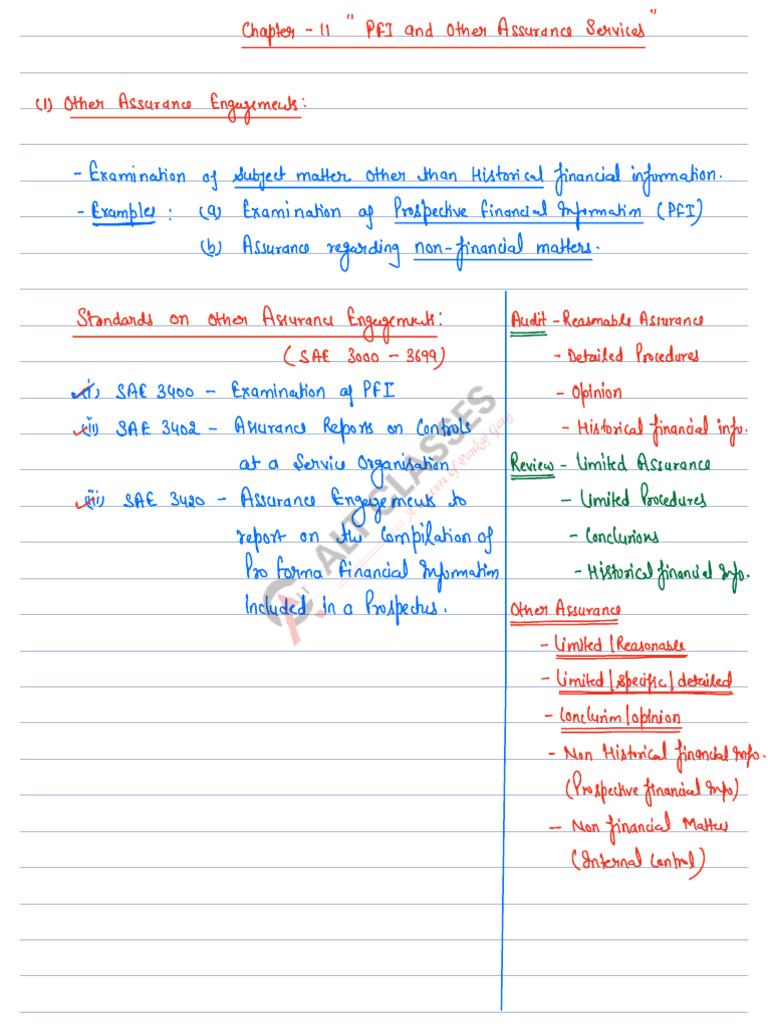 Chapter - 11 " PFI and Other Assurance Services"
(1) Other Assurance Engagements:
- Examination of subject matter other than Historical financial information.
- Examples: (a) Examination of Prospective Financial Information (PFI)
(b) Assurance regarding non-financial matters.
Standards on Other Assurance Engagements:
(SAE 3000 - 3699)
i) SAE 3400 - Examination of PFI
ii) SAE 3402 - Assurance Reports on Controls
at a Service Organisation
iii) SAE 3420 - Assurance Engagements to
report on the Compilation of
Pro forma Financial Information
Included in a Prospectus.
Audit - Reasonable Assurance
- Detailed Procedures
- Opinion
- Historical financial info.
Review - Limited Assurance
- Limited Procedures
- Conclusions
- Historical financial Info.
Other Assurance
- Limited / Reasonable
- Limited / specific / detailed
- Conclusion / opinion
- Non Historical financial Info.
(Prospective financial Info)
- Non financial Matter
(Internal Control)
ALT CLASSES
A Venture of Pankaj Garg